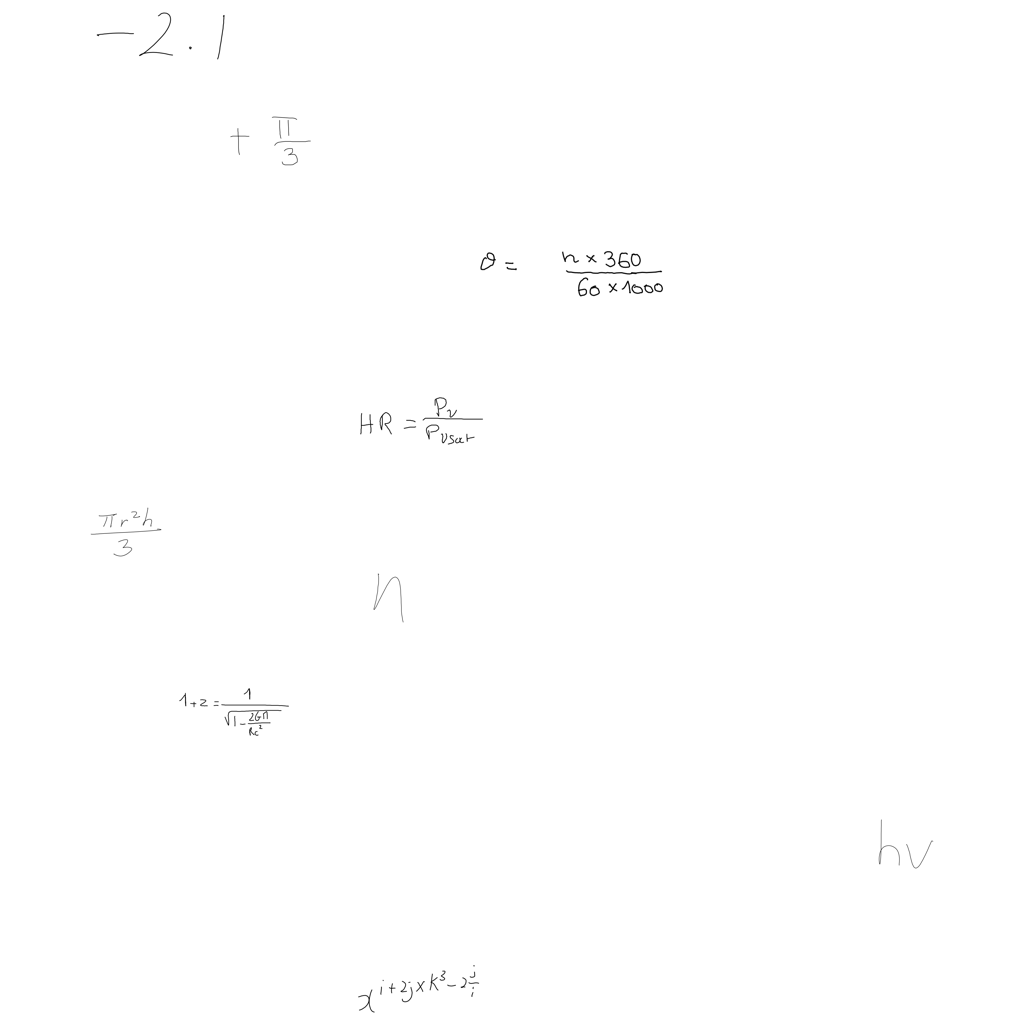 -2.1
+ \frac{\pi}{3}
\theta = \frac{n \times 360}{60 \times 1000}
HR = \frac{P_v}{P_{vsat}}
\frac{\pi r^2 h}{3}
n
1+z = \frac{1}{\sqrt{1-\frac{2GM}{Rc^2}}}
hv
x^{i+2j \times k^3 - 2\frac{j}{i}}